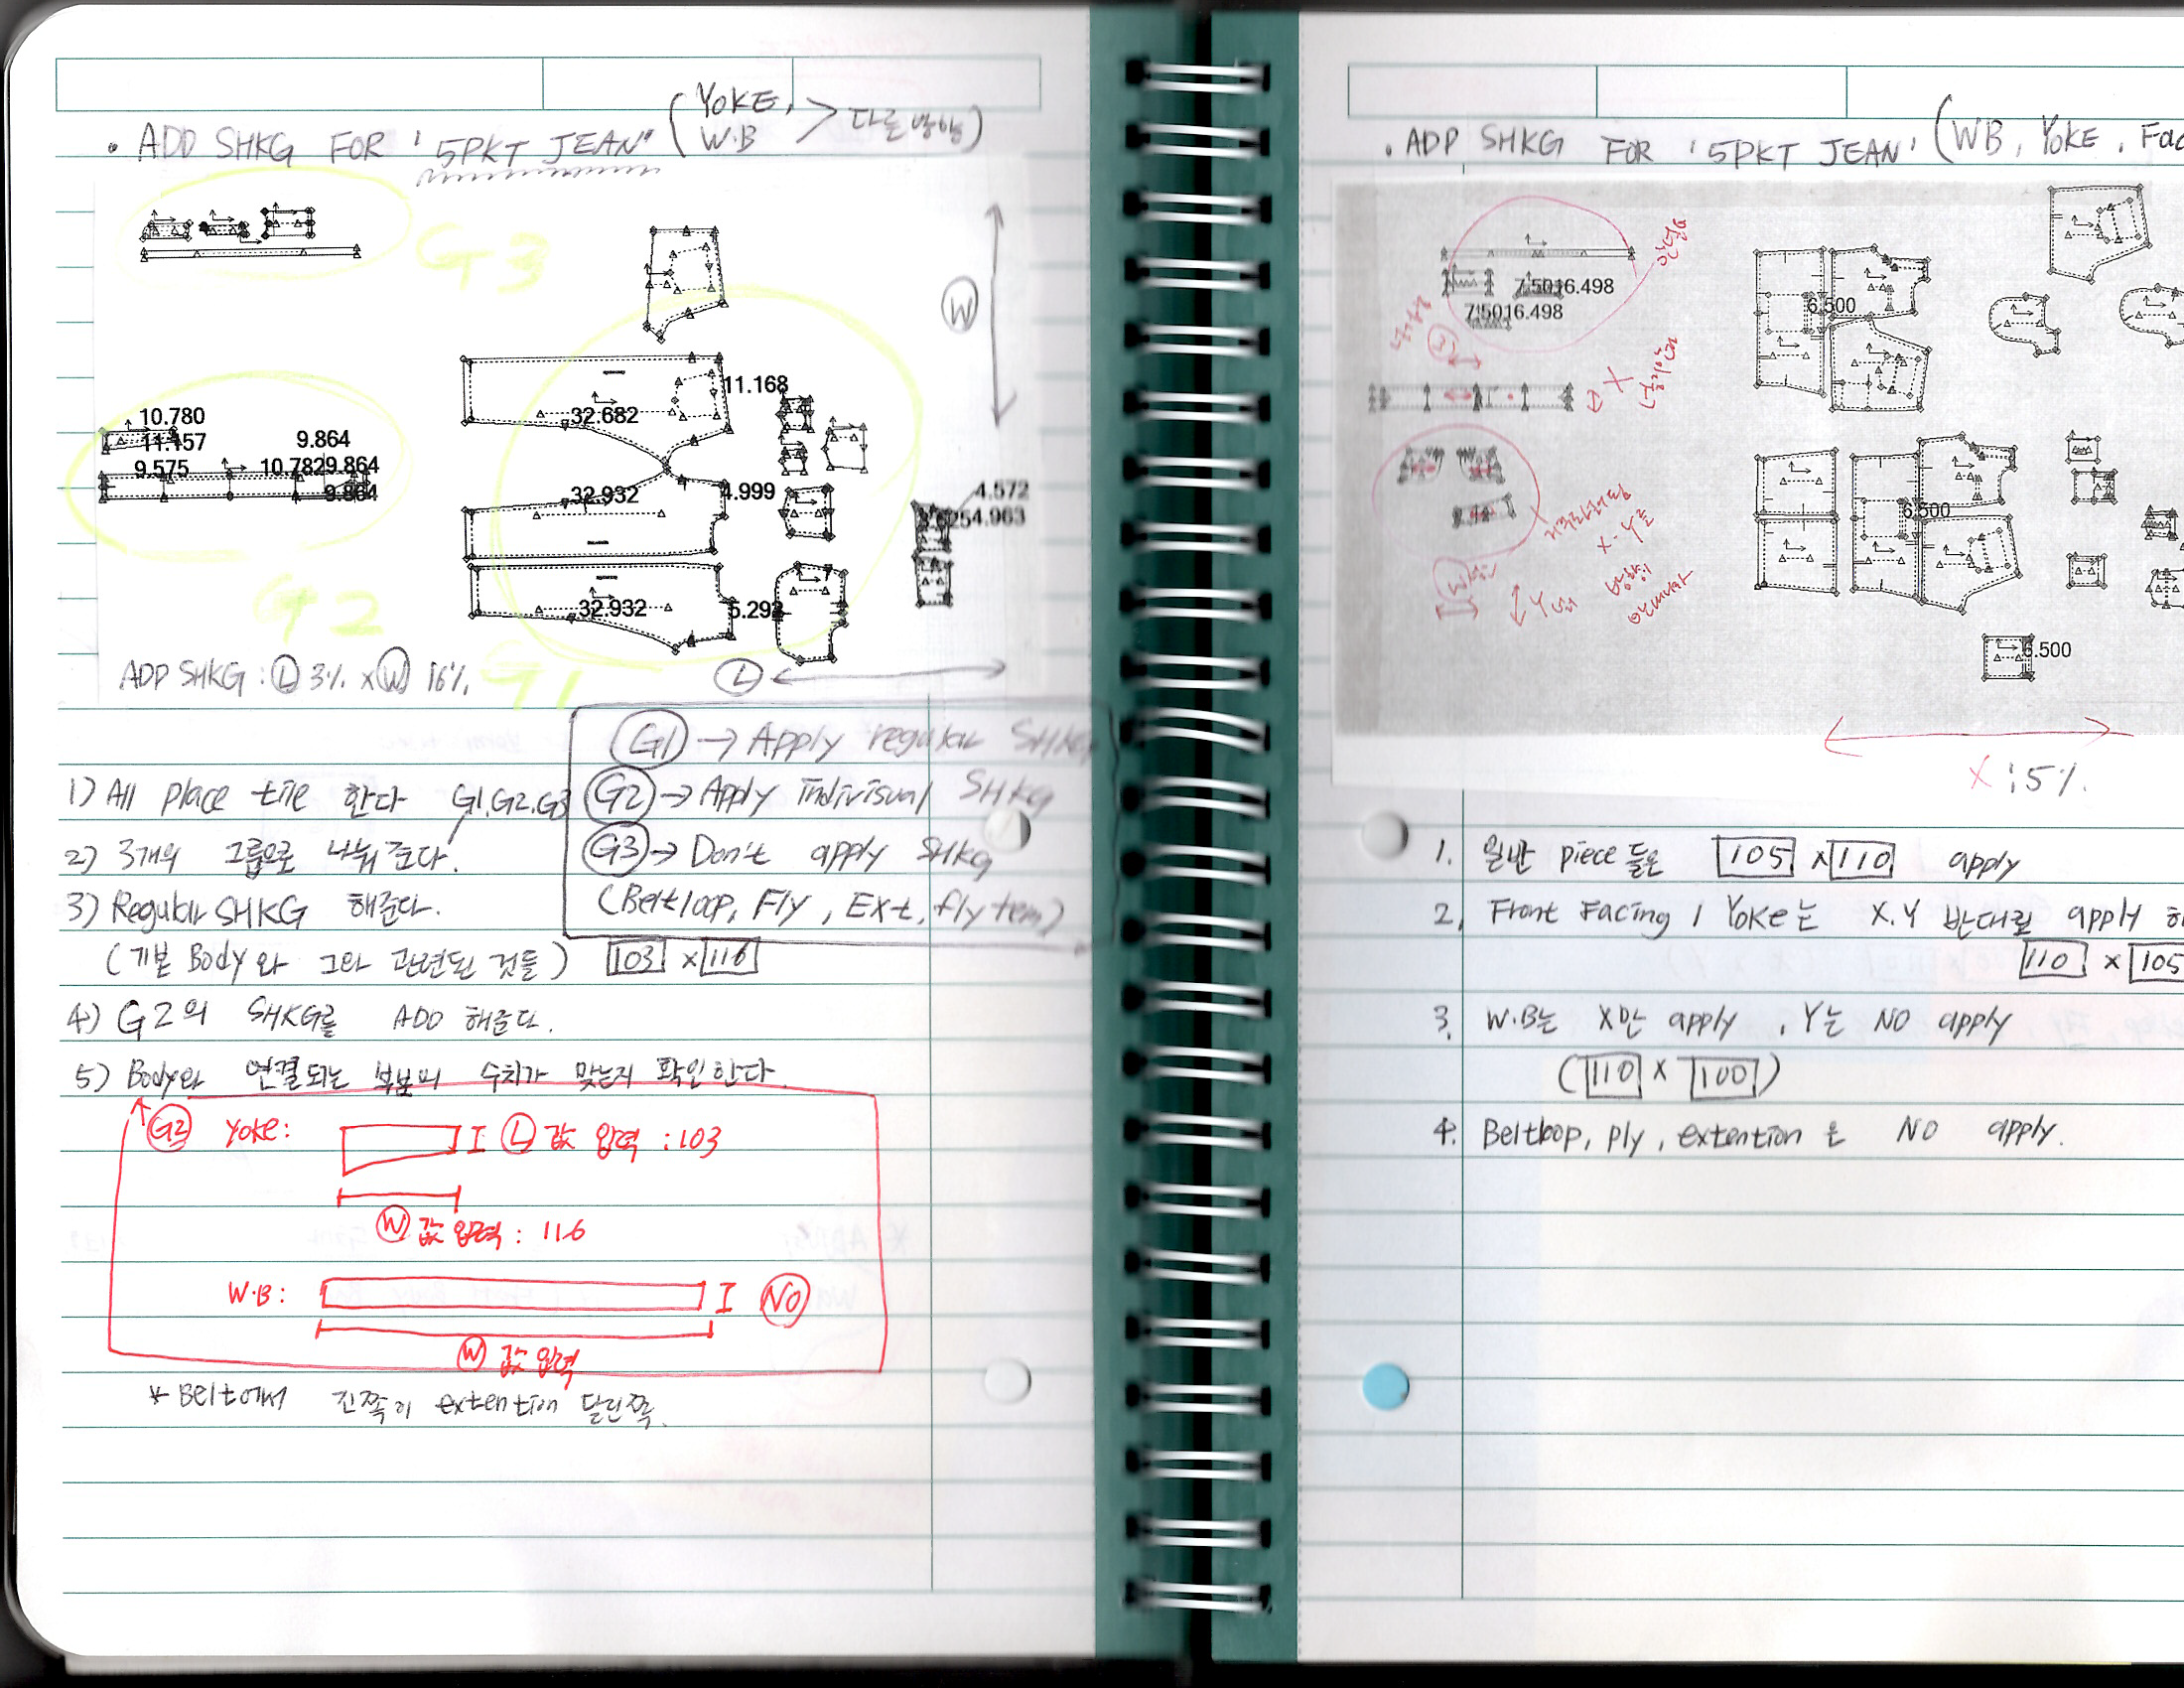 • ADD SHKG FOR '5PKT JEAN' (YOKE, W.B > 다른방향)
G3
W
10.780
11.157
9.575
9.864
10.782
9.864
9.864
11.168
32.682
32.932
4.999
4.572
4.963
32.932
5.292
G2
G1
ADD SHKG : Ⓛ 3% x Ⓦ 16%
L
G1 → Apply regular SHKG
G2 → Apply indivisual SHKG
G3 → Don't apply SHKG
(Beltloop, Fly, Ext, fly tem)
1) All place tile 한다 G1.G2.G3
2) 3개의 그룹으로 나눠준다.
3) Regular SHKG 해준다.
(기본 Body와 그와 관련된 것들) 103 x 116
4) G2의 SHKG를 ADD 해준다.
5) Body와 연결되는 부분의 수치가 맞는지 확인한다.
G2 Yoke: I Ⓛ 값 입력 : 103
Ⓦ 값 입력 : 116
W.B: I NO
Ⓦ 값 입력
* Belt에서 긴쪽이 extention 달린쪽.
• ADD SHKG FOR '5PKT JEAN' (WB, YOKE, Fac
7.5016.498
7.5016.498
6.500
X
6.500
X-Y를
W
6.500
X : 5%.
1. 일반 piece들은 105 x 110 apply
2. Front Facing / Yoke는 X.Y 반대로 apply 하
110 x 105
3. W.B는 X만 apply, Y는 NO apply
(110 x 100)
4. Beltloop, ply, extention은 NO apply.